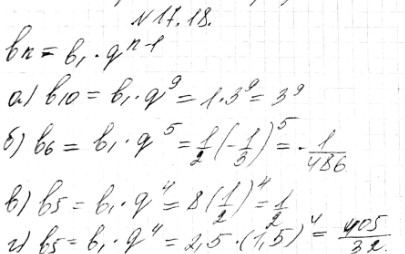 №17.18.
bₙ = b₁ · qⁿ⁻¹
а) b₁₀ = b₁ · q⁹ = 1 · 3⁹ = 3⁹
б) b₆ = b₁ · q⁵ = 1/2 (-1/3)⁵ = -1/486
в) b₅ = b₁ · q⁴ = 8 (1/2)⁴ = 1/2
г) b₅ = b₁ · q⁴ = 2,5 · (1,5)⁴ = 405/32.